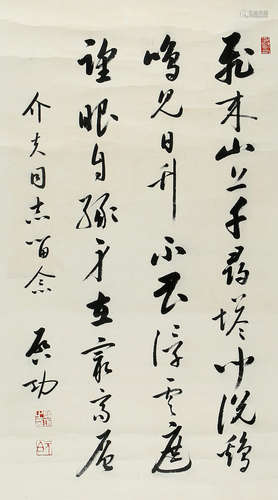 飛来山上千尋塔�
説鷄鳴見日升不畏浮雲遮
望眼自緣身在最高層
介夫同志留念
啓功